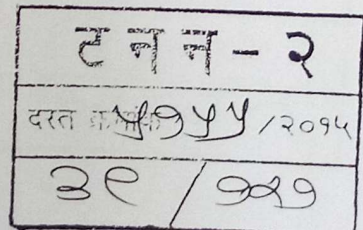 टनन - २
दस्त क्रमांक ५१५५ /२०१५
३९ / १२१